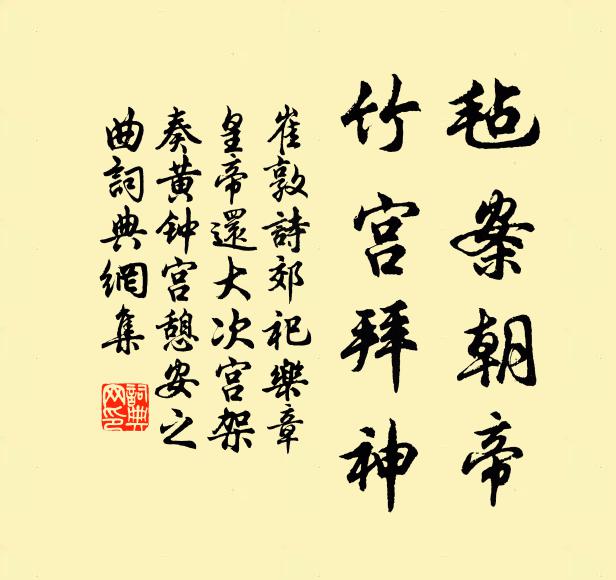 毡案朝帝
竹宫拜神
崔敦詩郊祀樂章
皇帝還大次宫架
奏黄钟宫憩安之
曲詞典網集
詞典网印